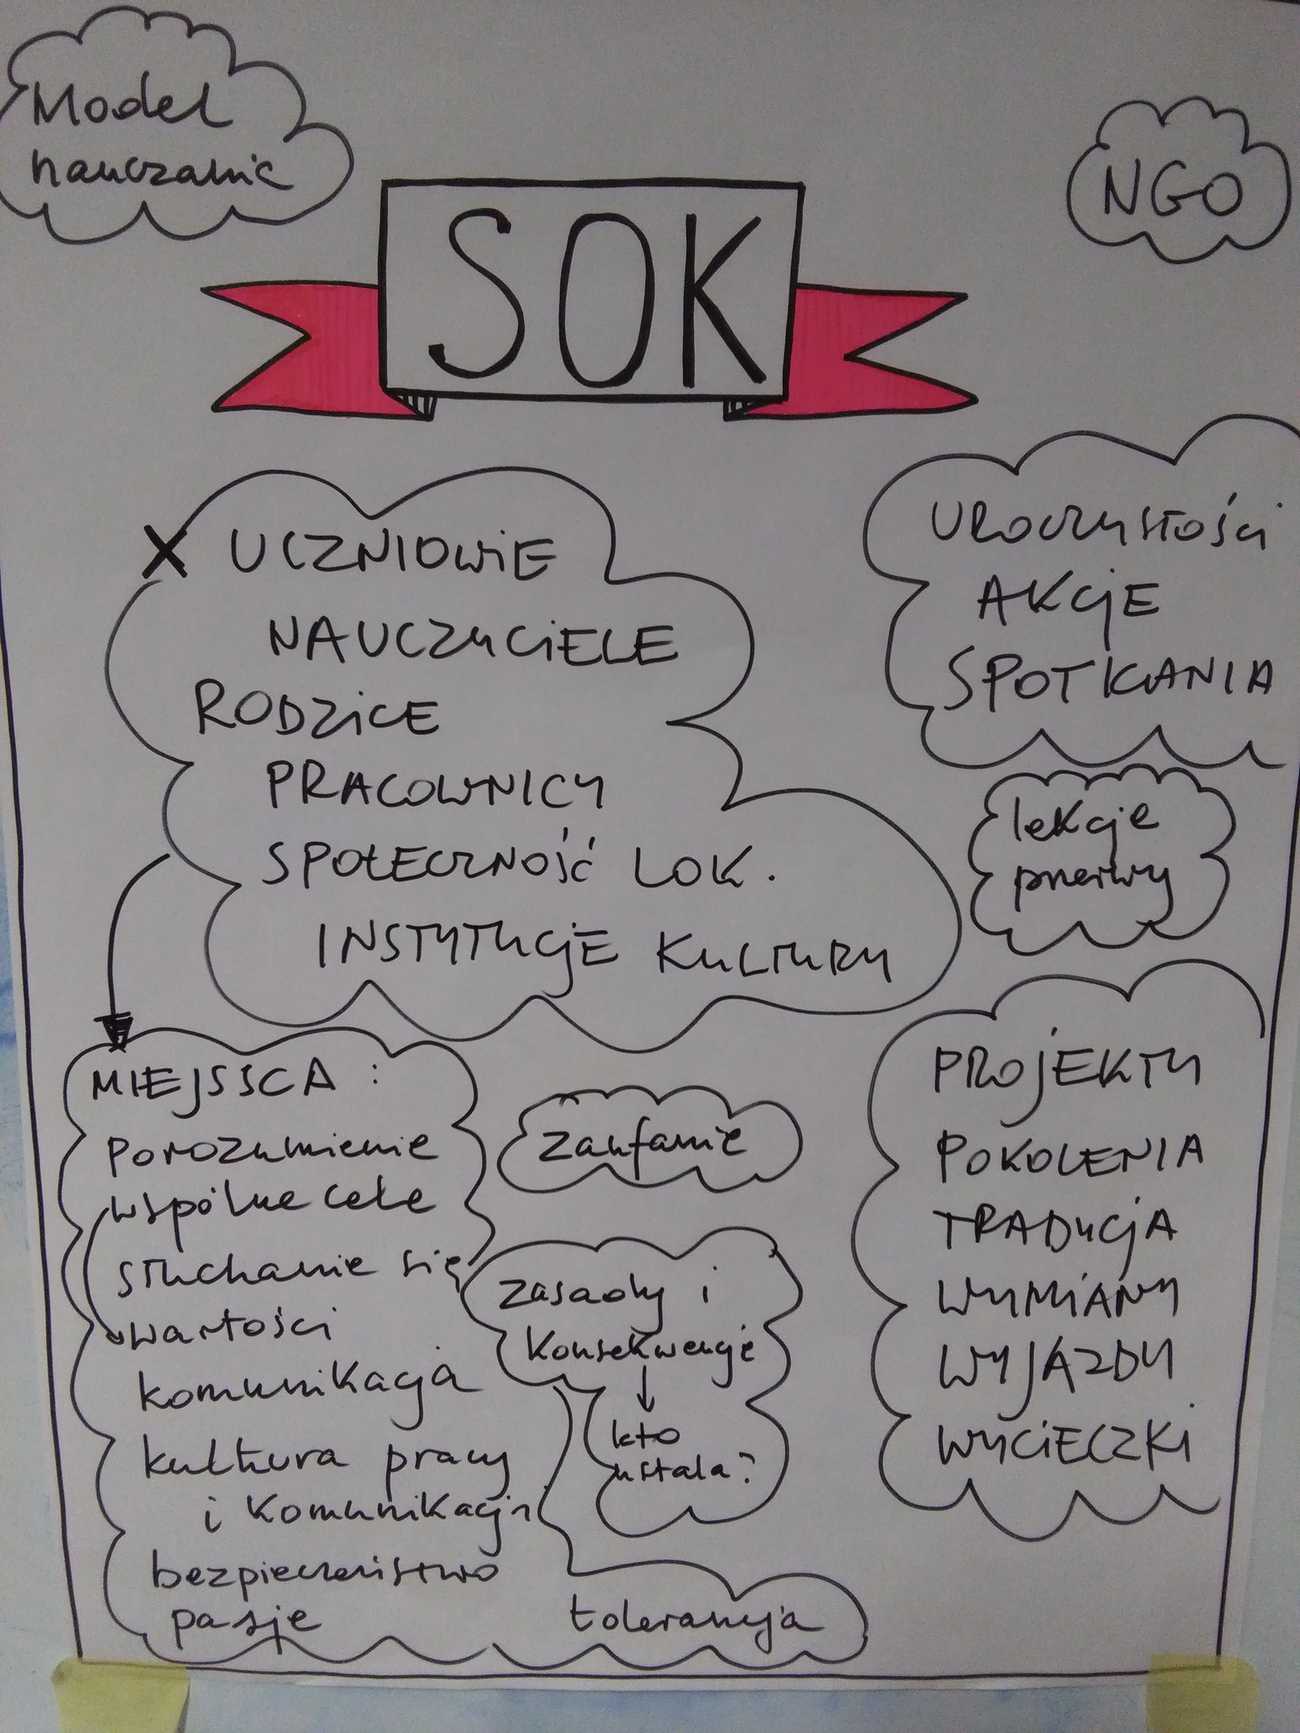 Model
nauczanie
NGO
SOK
X UCZNIOWIE
NAUCZYCIELE
RODZICE
PRACOWNICY
SPOŁECZNOŚĆ LOK.
INSTYTUCJE KULTURY
UROCZYSTOŚCI
AKCJE
SPOTKANIA
lekcje
przerwy
MIEJSCA:
porozumienie
wspólne cele
słuchanie się
wartości
komunikacja
kultura pracy
i komunikacji
bezpieczeństwo
pasje
tolerancja
zaufanie
zasady i
konsekwencje
kto
ustala?
PROJEKTY
POKOLENIA
TRADYCJA
WYMIANY
WYJAZDY
WYCIECZKI